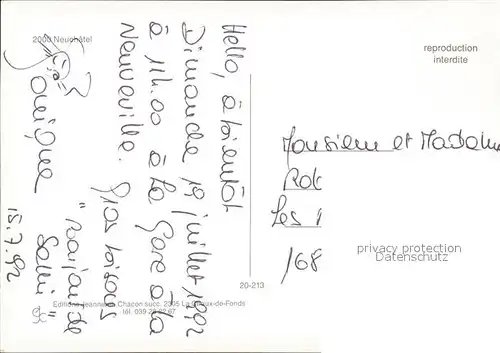 2000 Neuchâtel
Hello, à bientôt
Dimanche 19 juillet 1992
à 11h.00 à la Gare à la
Neuveville. Gros bisous
Monique
15.7.92
reproduction
interdite
Monsieur et Madame
Rob
Les
168
privacy protection
Datenschutz
20-213
Editions Jeanneret Chacon succ. 2305 La Chaux-de-Fonds
tél. 039 26 82 67